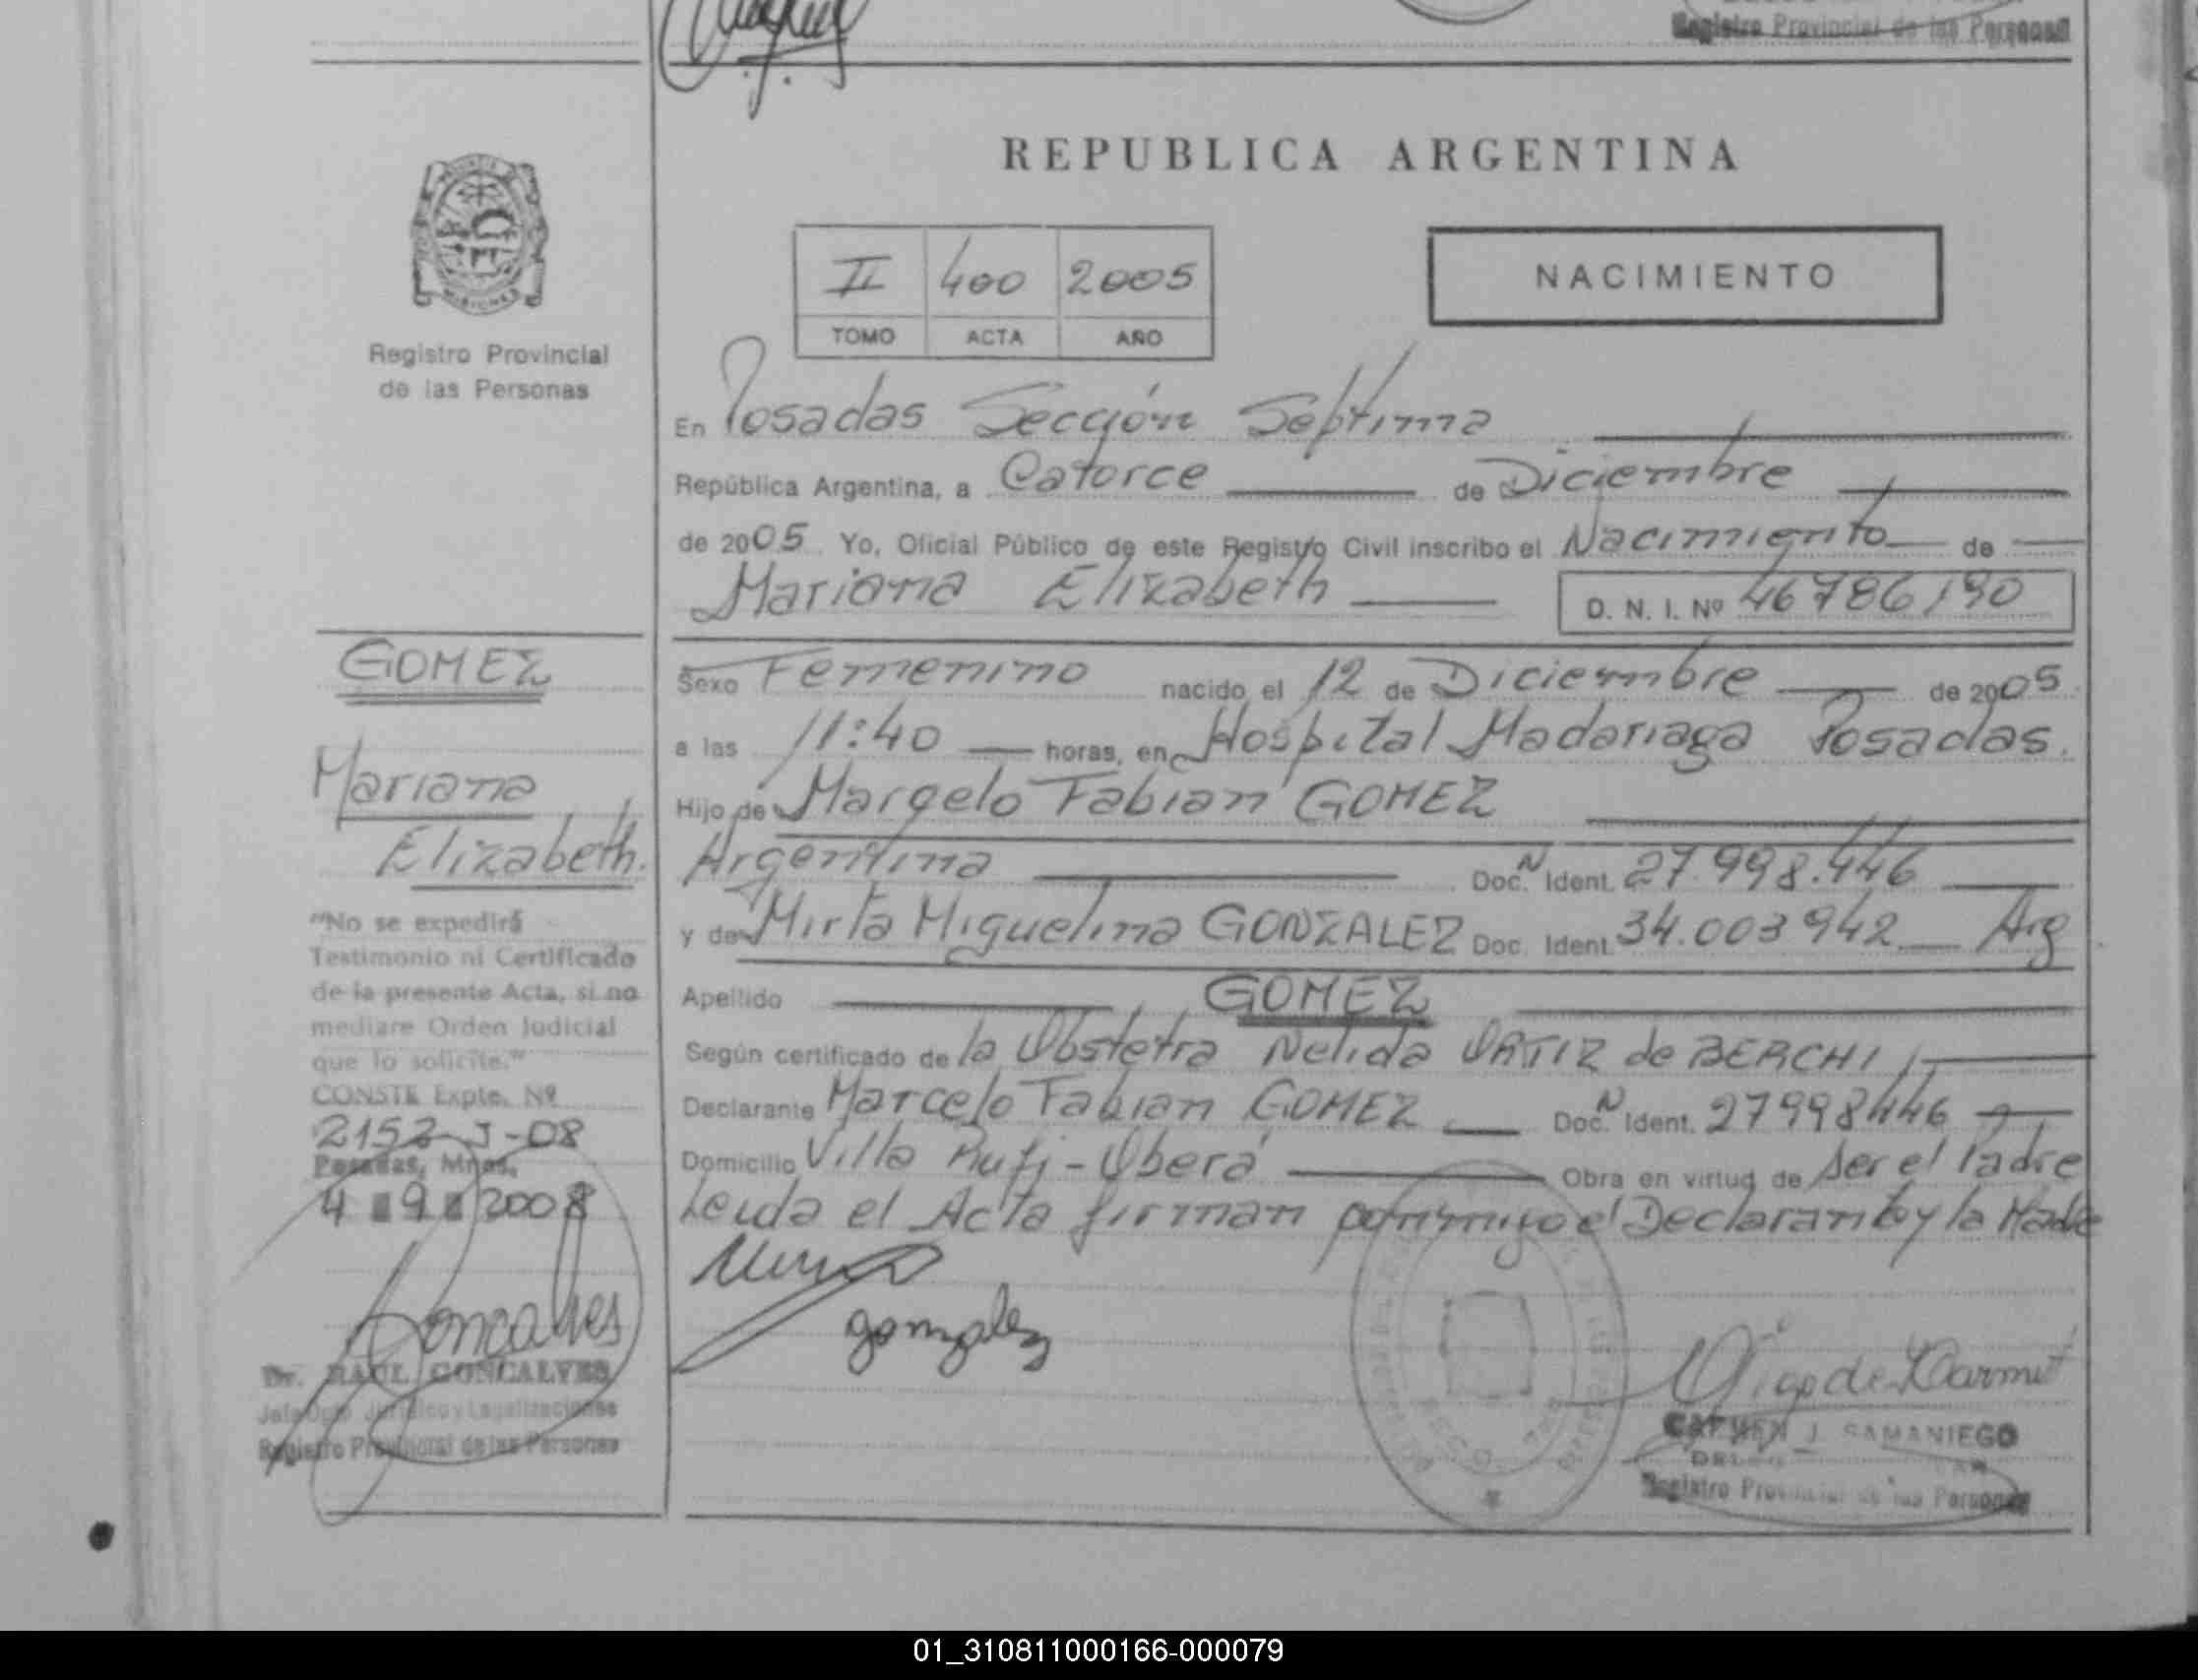 Registro Provincial de las Personas
REPUBLICA ARGENTINA
MISIONES
Registro Provincial
de las Personas
II 400 2005
TOMO ACTA AÑO
NACIMIENTO
En Posadas Sección Séptima
República Argentina, a Catorce de Diciembre
de 2005 Yo, Oficial Público de este Registro Civil inscribo el Nacimiento de
Mariana Elizabeth D. N. I. Nº 46786190
GOMEZ
Mariana
Elizabeth.
Sexo Femenino nacido el 12 de Diciembre de 2005
a las 11:40 horas, en Hospital Madariaga Posadas.
Hijo de Marcelo Fabian GOMEZ
Argentina Doc. N Ident. 27.998.446
y de Mirta Miguelina GONZALEZ Doc. Ident. 34.003942 Arg
Apellido GOMEZ
Según certificado de la Obstetra Nelida ORTIZ de BERCHI
Declarante Marcelo Fabian GOMEZ Doc. N Ident. 27998446
Domicilio Villa Ruff - Oberá Obra en virtud de ser el Padre
Leida el Acta firman conmigo el Declarante y la Madre
"No se expedirá
Testimonio ni Certificado
de la presente Acta, si no
mediare Orden Judicial
que lo solicite."
CONSTE Expte. Nº
2152-J-08
Posadas, Mnes,
4 9 2008
Goncalves
Dr. RAUL GONCALVES
Jefe Dpto Jurídico y Legalizaciones
Registro Provincial de las Personas
gonzalez
CARMEN J. SAMANIEGO
Registro Provincial de las Personas
01_310811000166-000079